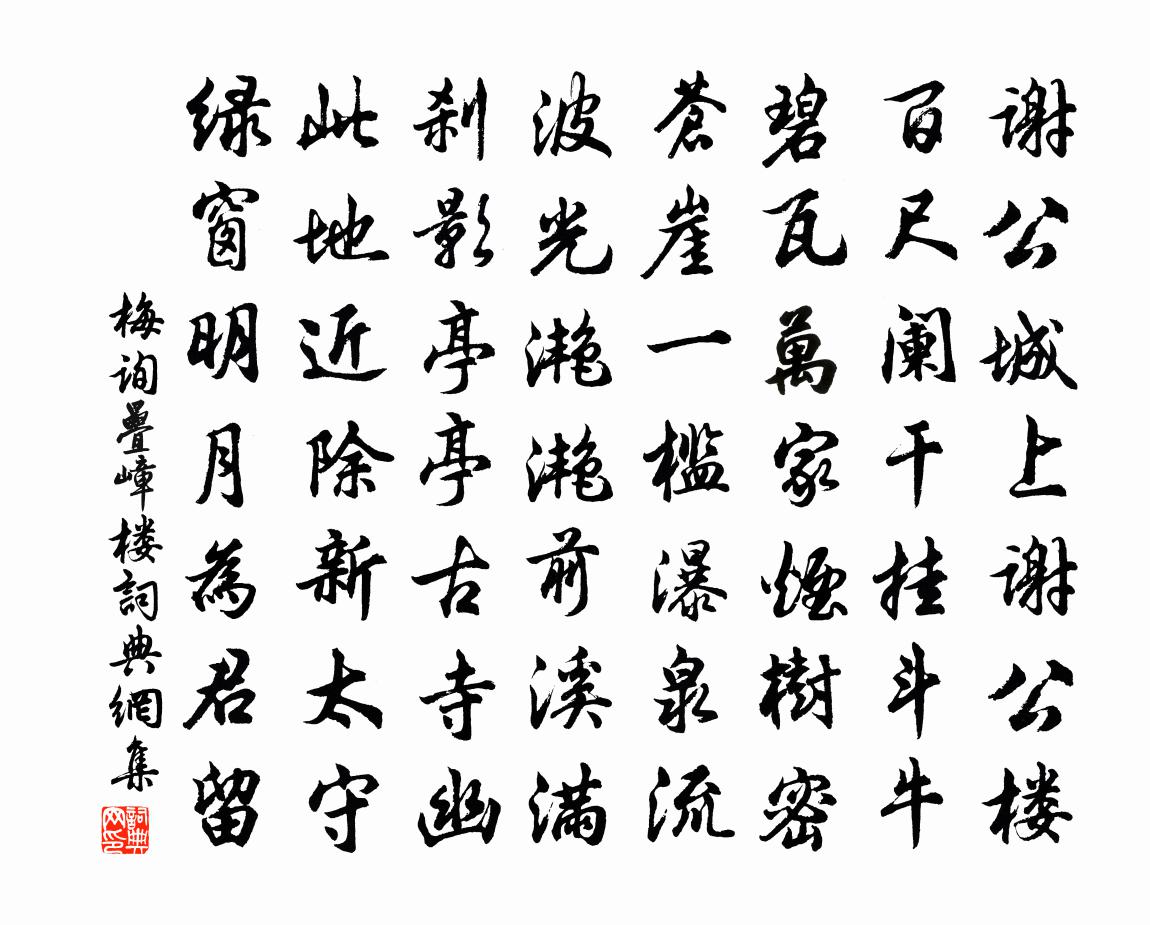 谢公城上谢公楼
百尺阑干挂斗牛
碧瓦萬家煙樹密
蒼崖一檻瀑泉流
波光灔灔前溪满
刹影亭亭古寺幽
此地近除新太守
绿窗明月為君留
梅询疊嶂楼詞典網集
詞典网印